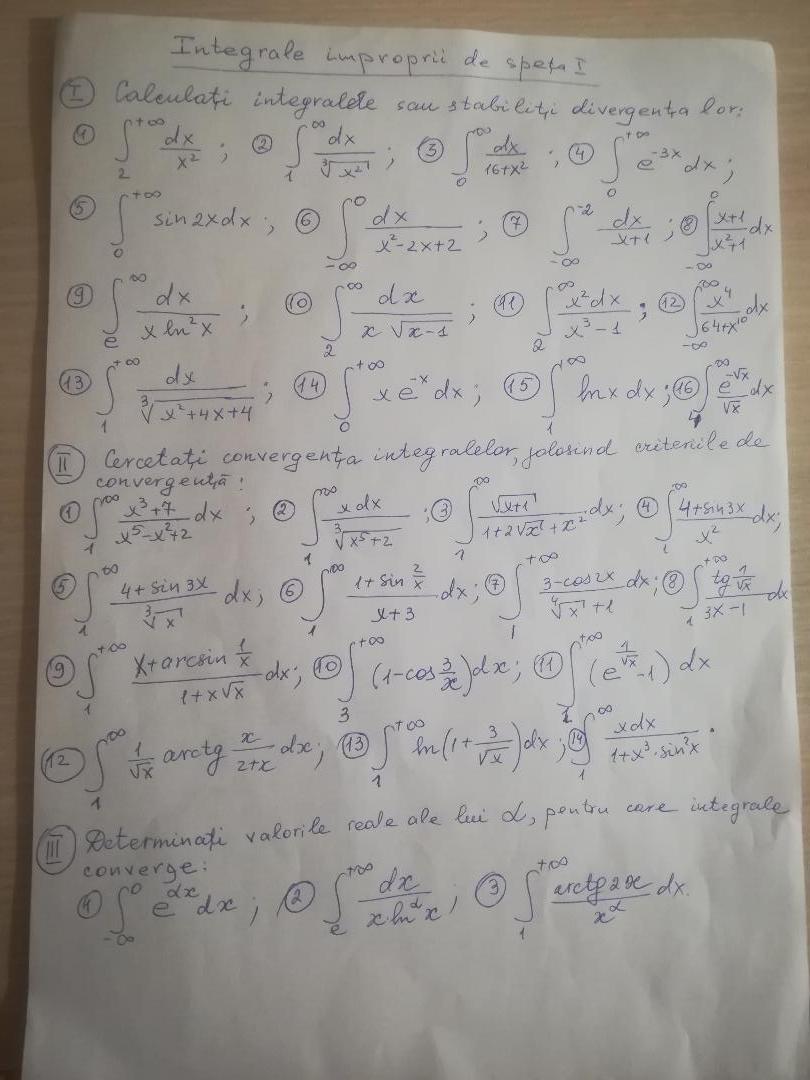 Integrale improprii de speța I
I Calculați integralele sau stabiliți divergența lor:
1 ∫_2^{+∞} dx/x²; 2 ∫_1^∞ dx/∛(x²); 3 ∫_0^∞ dx/(16+x²); 4 ∫_0^{+∞} e^{-3x} dx;
5 ∫_0^{+∞} sin2xdx; 6 ∫_{-∞}^0 dx/(x²-2x+2); 7 ∫_{-∞}^{-2} dx/(x+1); 8 ∫_{-∞}^0 (x+1)/(x²+1) dx
9 ∫_e^∞ dx/(x ln²x); 10 ∫_2^∞ dx/(x√(x-1)); 11 ∫_2^∞ x²dx/(x³-1); 12 ∫_{-∞}^∞ x⁴/(64+x^{10}) dx
13 ∫_1^{+∞} dx/∛(x²+4x+4); 14 ∫_0^{+∞} x e^{-x} dx; 15 ∫_1^{+∞} lnx dx; 16 ∫_4^∞ e^{-√x}/√x dx
II Cercetați convergența integralelor, folosind criteriile de
convergență:
1 ∫_1^∞ (x³+7)/(x⁵-x²+2) dx; 2 ∫_1^∞ xdx/∛(x⁵+2); 3 ∫_1^∞ √(x+1)/(1+2√x+x²) dx; 4 ∫_1^∞ (4+sin3x)/x² dx;
5 ∫_1^{+∞} (4+sin3x)/∛x dx; 6 ∫_1^∞ (1+sin 2/x)/(x+3) dx; 7 ∫_1^{+∞} (3-cos2x)/(∜x+1) dx; 8 ∫_1^{+∞} (tg 1/√x)/(3x-1) dx
9 ∫_1^{+∞} (x+arcsin 1/x)/(1+x√x) dx; 10 ∫_3^{+∞} (1-cos 3/x)dx; 11 ∫_1^{+∞} (e^{1/√x}-1) dx
12 ∫_1^∞ 1/√x arctg x/(2+x) dx; 13 ∫_1^{+∞} ln(1+3/√x)dx; 14 ∫_1^∞ xdx/(1+x³·sin²x).
III Determinați valorile reale ale lui α, pentru care integrale
converge:
1 ∫_{-∞}^0 e^{αx}dx; 2 ∫_e^{+∞} dx/(x·ln^α x); 3 ∫_1^{+∞} arctg2x/x^α dx.